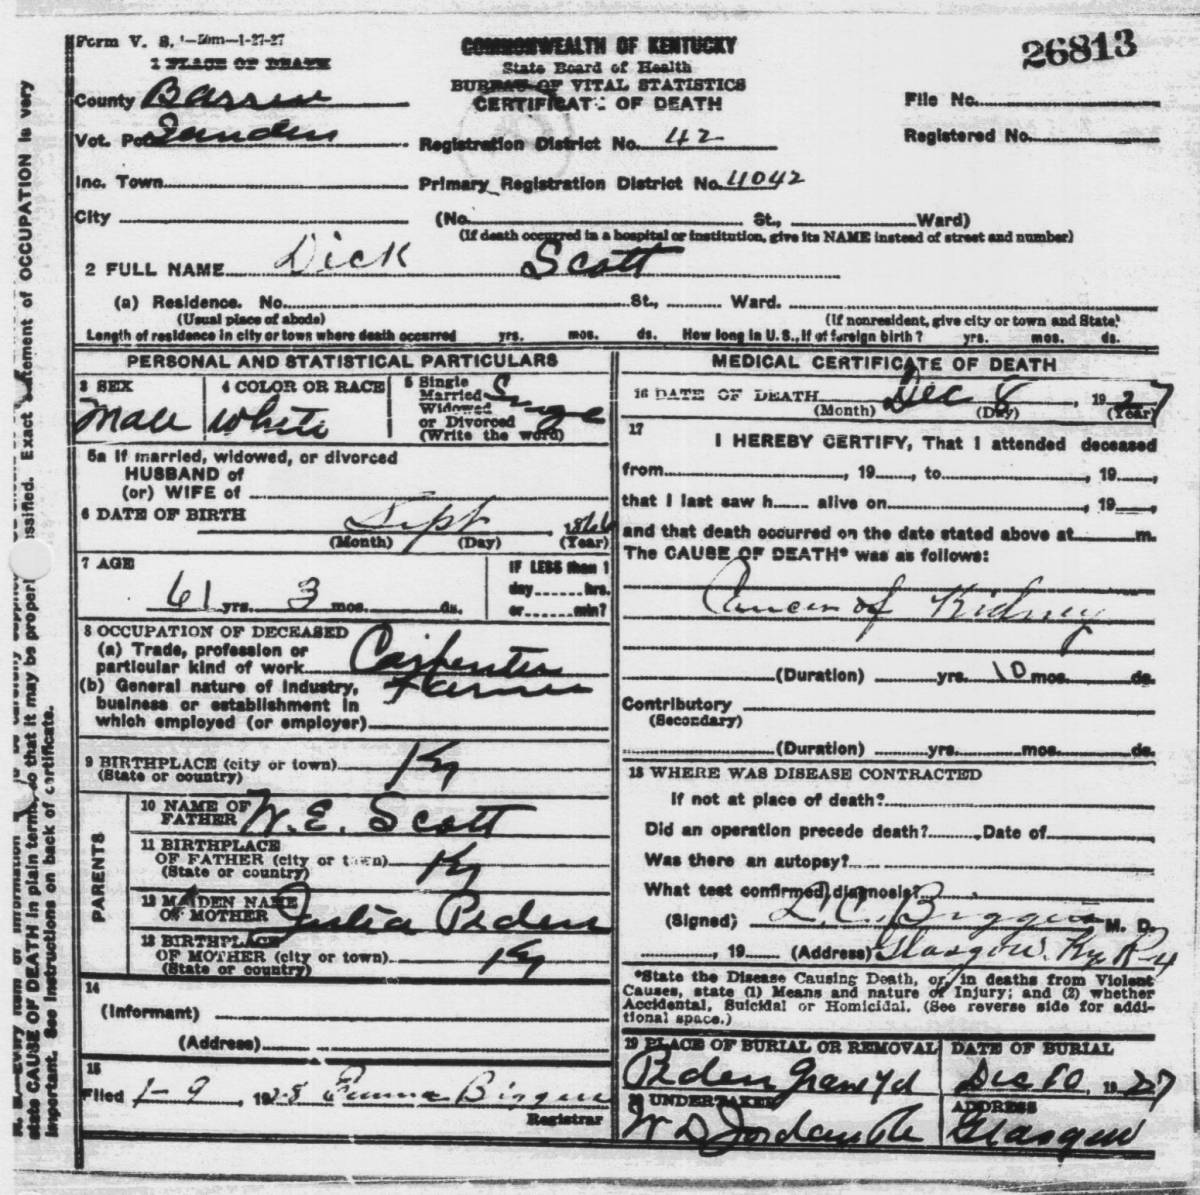 Form V. S. 1-50m-1-27-27
COMMONWEALTH OF KENTUCKY
26813
1 PLACE OF DEATH
State Board of Health
BUREAU OF VITAL STATISTICS
CERTIFICATE OF DEATH
County Barren
File No.
Vot. Pct
Registration District No. 42
Registered No.
Inc. Town
Primary Registration District No. 4042
City
(No. St., Ward)
(If death occurred in a hospital or institution, give its NAME instead of street and number)
2 FULL NAME Dick Scott
(a) Residence. No. St., Ward.
(Usual place of abode)
(If nonresident, give city or town and State)
Length of residence in city or town where death occurred yrs. mos. ds. How long in U.S., if of foreign birth? yrs. mos. ds.
PERSONAL AND STATISTICAL PARTICULARS
3 SEX
Male
4 COLOR OR RACE
White
5 Single
Married
Widowed
or Divorced
(Write the word)
Single
5a If married, widowed, or divorced
HUSBAND of
(or) WIFE of
6 DATE OF BIRTH
Sept 1866
(Month) (Day) (Year)
7 AGE
61 yrs. 3 mos. ds.
IF LESS than 1
day hrs.
or min?
8 OCCUPATION OF DECEASED
(a) Trade, profession or
particular kind of work Carpenter
(b) General nature of industry, Farmer
business or establishment in
which employed (or employer)
9 BIRTHPLACE (city or town) Ky
(State or country)
PARENTS
10 NAME OF
FATHER W. E. Scott
11 BIRTHPLACE
OF FATHER (city or town) Ky
(State or country)
12 MAIDEN NAME
OF MOTHER Julia Peden
13 BIRTHPLACE
OF MOTHER (city or town) Ky
(State or country)
14
(Informant)
(Address)
15
Filed 1-9, 1928 Emma Biggers
Registrar
MEDICAL CERTIFICATE OF DEATH
16 DATE OF DEATH Dec 8, 1927
(Month) (Day) (Year)
17
I HEREBY CERTIFY, That I attended deceased
from , 19 , to , 19 ,
that I last saw h alive on , 19 ,
and that death occurred on the date stated above at m.
The CAUSE OF DEATH* was as follows:
Cancer of Kidney
(Duration) yrs. 10 mos. ds.
Contributory
(Secondary)
(Duration) yrs. mos. ds.
18 WHERE WAS DISEASE CONTRACTED
If not at place of death?
Did an operation precede death? Date of
Was there an autopsy?
What test confirmed diagnosis?
(Signed) L. C. Biggers M. D.
, 19 (Address) Glasgow Ky R-4
*State the Disease Causing Death, or, in deaths from Violent
Causes, state (1) Means and nature of Injury; and (2) whether
Accidental, Suicidal or Homicidal. (See reverse side for addi-
tional space.)
19 PLACE OF BURIAL OR REMOVAL
Peden Grave Yd
DATE OF BURIAL
Dec 10, 1927
20 UNDERTAKER
W D Jordan
ADDRESS
Glasgow
state CAUSE OF DEATH in plain terms, so that it may be properly classified. Exact statement of OCCUPATION is very
important. See instructions on back of certificate.